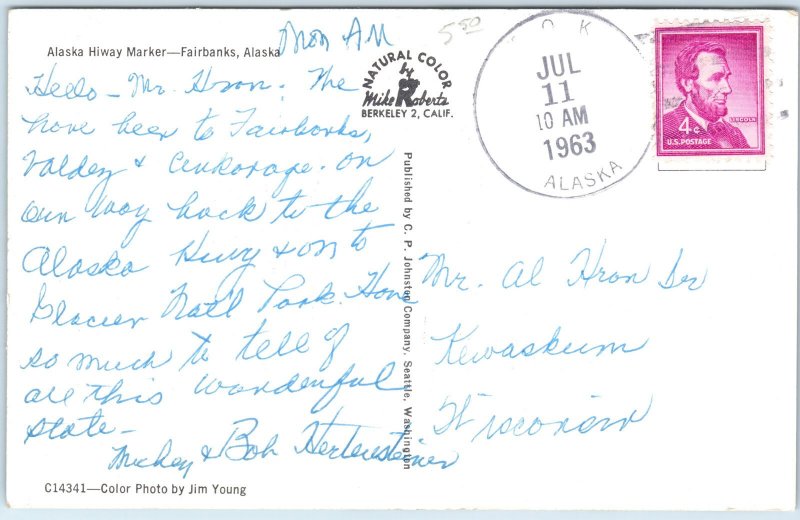 Alaska Hiway Marker—Fairbanks, Alaska
Mon AM
5.50
NATURAL COLOR
by
Mike Roberts
BERKELEY 2, CALIF.
Hello - Mr. Hron. We
have been to Fairbanks,
Valdez & Ankorage. On
our way back to the
Alaska Hwy & on to
Glacier Nat'l Park. Have
so much to tell of
all this wonderful
state -
Mickey & Bob Hertensteiner
C14341—Color Photo by Jim Young
Published by C. P. Johnston Company, Seattle, Washington
OK
JUL
11
10 AM
1963
ALASKA
LINCOLN
4¢
U.S. POSTAGE
Mr. Al Hron Sr
Kewaskum
Wisconsin